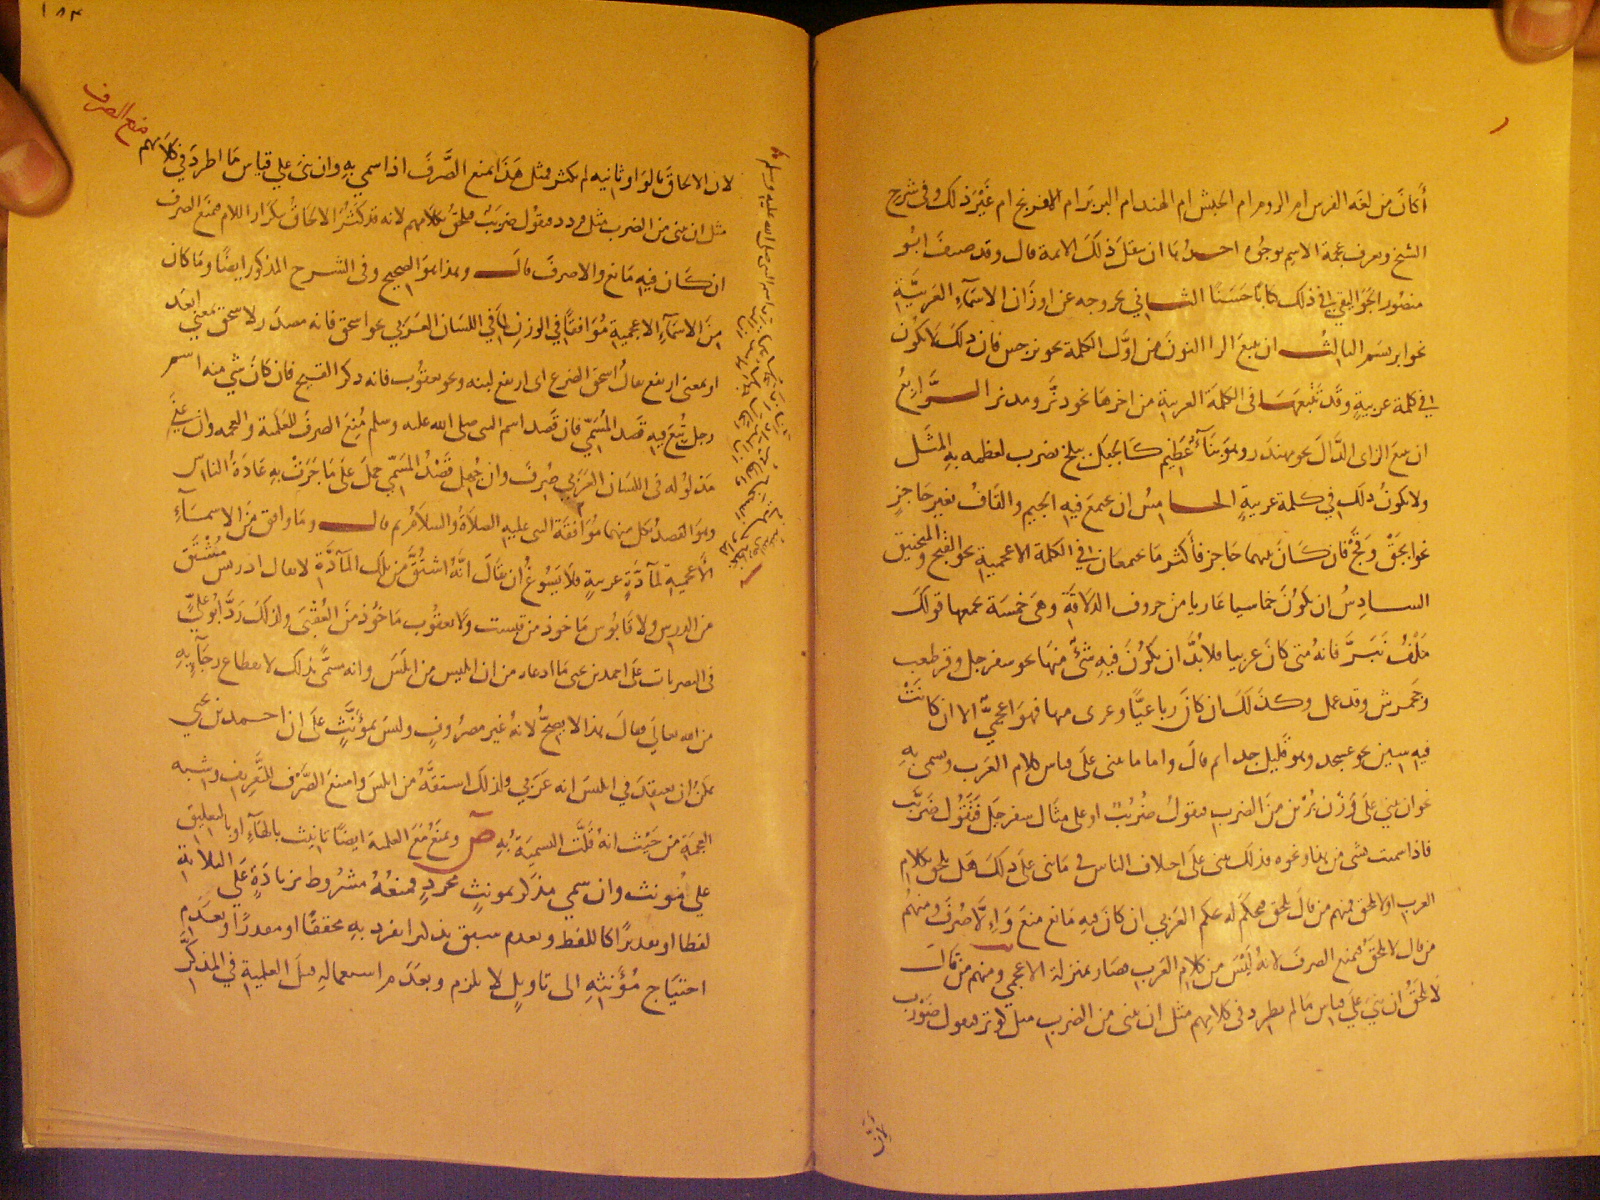 أكان من لغة الفرس أم الروم أم الحبش أم الهند أم البربر أم الافرنج أم غير ذلك وفي شرح
الشيخ وتعرف عجمة الاسم بوجوه احدها ان تنقل ذلك الائمة قال وقد صنف ابو
منصور الجواليقي في ذلك كتابا حسنا الثاني خروجه عن اوزان الاسماء العربية
نحو ابريسم الثالث ان يتبع الرا النون من اول الكلمة نحو نرجس فان ذلك لا يكون
في كلمة عربية وقد تتبعها في الكلمة العربية من اخرها نحو دنر ومدنر الرابع
ان يتبع الزاى الدال نحو مهندز وهو بناء عظيم كالجبل ببلخ يضرب لعظمه به المثل
ولا يكون ذلك في كلمة عربية الخامس ان يجتمع فيه الجيم والقاف بغير حاجز
نحو جق وقج فان كان بينهما حاجز فأكثر ما يجتمعان في الكلمة الاعجمية نحو القبج والمنجنيق
السادس ان يكون خماسيا عاريا من حروف الذلاقة وهى خمسة يجمعها قولك
فانه متى كان عربيا فلا بد ان يكون فيه شئ منها نحو سفرجل وقرطعب
وجحمرش وقدعمل وكذلك ان كان رباعيا وعرى منها فهو اعجمي الا ان كانت
فيه سين نحو عسجد وهو قليل جدا ثم قال واما ما بنى على قياس كلام العرب وسمى به
نحو ان يبنى على وزن برثن من الضرب فتقول ضربب او على مثال سفرجل فتقول ضربب
فاذا سميت بشى من هذا ونحوه فذلك مبنى على اختلاف الناس في ما بنى على ذلك هل يلحق بكلام
العرب اولا يلحق فمنهم من قال يلحق فحكم له بحكم العربي ان كان فيه مانع منع والا صرف ومنهم
من قال لا يلحق فمنع الصرف لانه ليس من كلام العرب فصار بمنزلة الاعجمي ومنهم من قال
لا يلحق ان بني على قياس ما لم يطرد في كلامهم مثل ان يبنى من الضرب مثل كوثر فتقول ضورب
لان
١٨٤
منع الصرف
لان الالحاق بالواو ثانيه لم يكثر فمثل هذا يمنع الصرف اذا سمي به وان بنى على قياس ما اطرد في كلامهم
مثل ان يبنى من الضرب مثل قردد فتقول ضربب فملحق بكلامهم لانه قد كثر الالحاق بتكرار اللام فمنع الصرف
ان كان فيه مانع والا صرف قال وهذا هو الصحيح وفى الشرح المذكور ايضا وما كان
من الاسماء الاعجمية موافقا في الوزن لما في اللسان العربي نحو اسحق فانه مصدر لاسحق بمعنى ابعد
او بمعنى ارتفع يقال اسحق الضرع اى ارتفع لبنه ونحو يعقوب فانه ذكر القبج فان كان شي منه اسم
رجل تتبع فيه قصد المسمي فان قصد اسم النبى صلى الله عليه وسلم منع الصرف للعلمية والعجمه وان عني
مدلوله فى اللسان العربي صرف وان جهل قصد المسمى حمل على ما جرت به عادة الناس
وهو القصد بكل منهما موافقة النبى عليه الصلاة والسلام ثم قال وما وافق من الاسماء
الاعجمية لمادة عربية فلا يسوغ ان يقال انه اشتق من تلك المادة لا يقال ادريس مشتق
من الدرس ولا قابوس ماخوذ من قبست ولا يعقوب ماخوذ من العقبى ولذلك رد ابو علي
فى البصريات على احمد بن يحيى ما ادعاه من ان ابليس من ابلس وانه سمى بذلك لانقطاع رجائه
من الله تعالى وقال هذا لا يصح لانه غير مصروف وليس بمؤنث على ان احمد بن يحيى
يمكن ان يعتقد في ابليس انه عربي ولذلك اشتقه من ابلس وامتنع الصرف للتعريف وشبه
العجمة من حيث انه قلت التسمية به ص ويمنع مع العلمية ايضا تانيث بالهاء او بالتعليق
على مؤنث وان سمي مذكر بمونث مجرد فمنعه مشروط بزيادة على الثلاثة
لفظا او تقديرا كاللفظ وبعدم سبق تذكير انفرد به محققا او مقدرا وبعدم
احتياج مؤنثه الى تاويل لا يلزم وبعدم استعماله قبل العلمية في المذكر